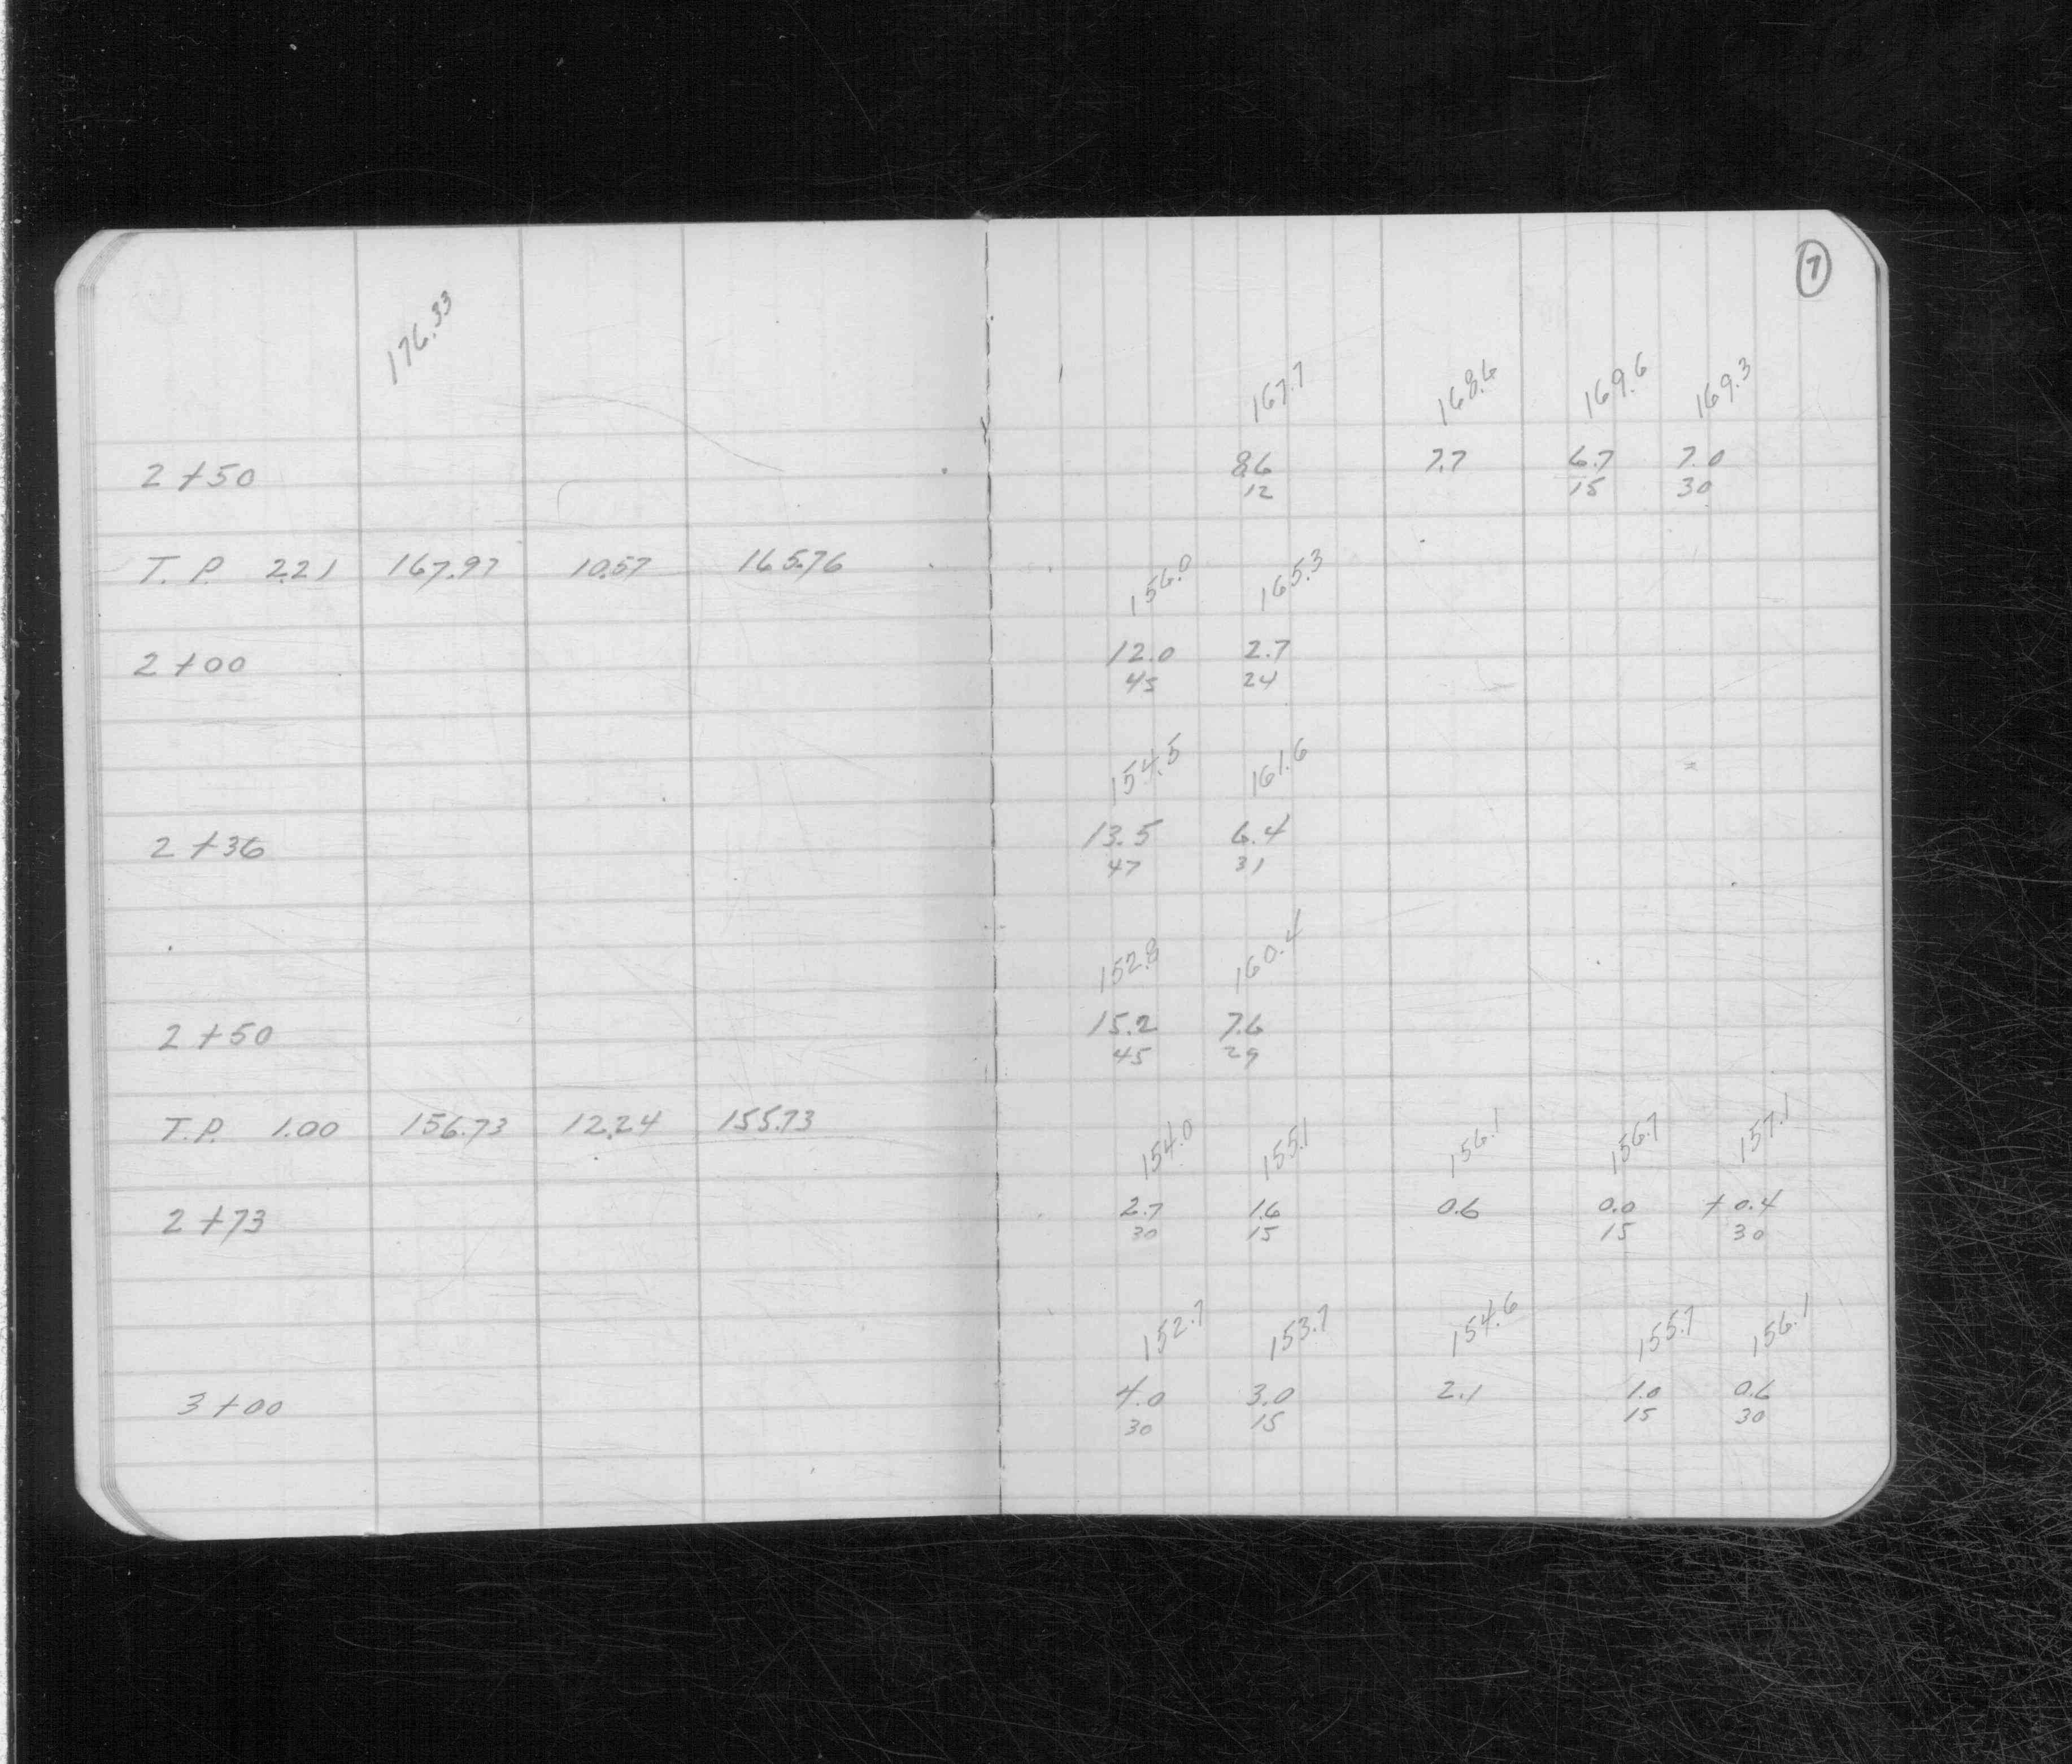 7
176.33
167.7 168.6 169.6 169.3
2+50 8.6 7.7 6.7 7.0
12 15 30
T.P. 2.21 167.97 10.57 165.76
156.0 165.3
2+00 12.0 2.7
45 24
154.5 161.6
2+36 13.5 6.4
47 31
152.8 160.4
2+50 15.2 7.6
45 29
T.P. 1.00 156.73 12.24 155.73
154.0 155.1 156.1 156.7 157.1
2+73 2.7 1.6 0.6 0.0 +0.4
30 15 15 30
152.7 153.7 154.6 155.7 156.1
3+00 4.0 3.0 2.1 1.0 0.6
30 15 15 30